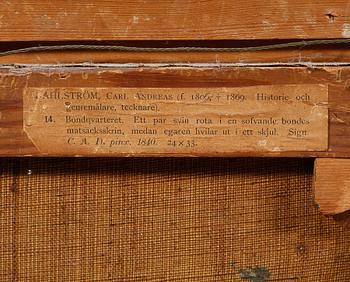 AHLSTRÖM, CARL ANDREAS (f. 1806, † 1869. Historie och
genremålare, tecknare).
14. Bondqvarteret. Ett par svin rota i en sofvande bondes
matsäcksskrin, medan egaren hvilar ut i ett skjul. Sign.
C. A. D. pinx. 1840. 24×33.